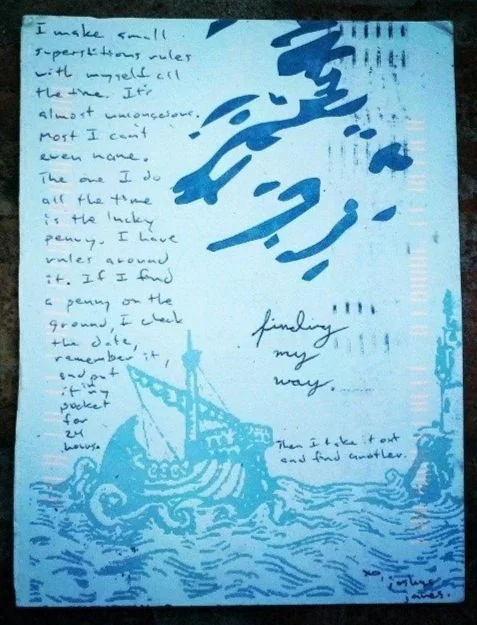 I make small
superstitious rules
with myself all
the time. It's
almost unconscious.
Most I can't
even name.
The one I do
all the time
is the lucky
penny. I have
rules around
it. If I find
a penny on the
ground, I check
the date,
remember it,
and put
it in my
pocket
for
24
hours.
finding
my
way.
Then I take it out
and find another.
xo,
james.